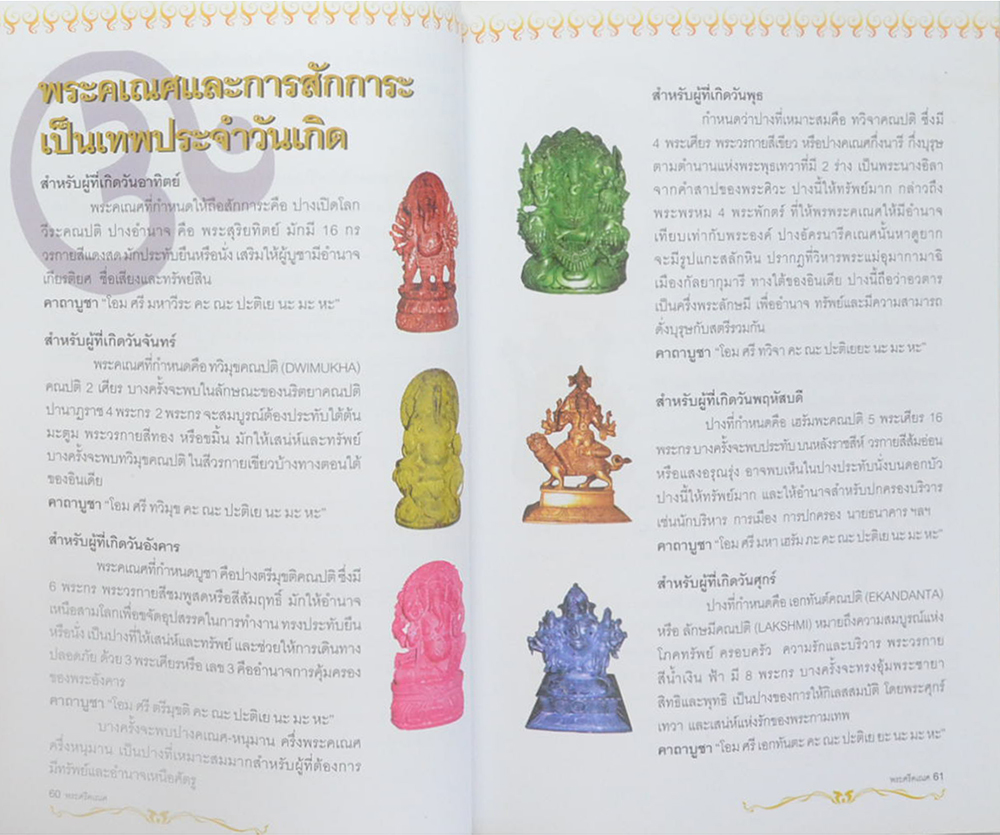 พระคเณศและการสักการะ
เป็นเทพประจำวันเกิด
สำหรับผู้ที่เกิดวันอาทิตย์
พระคเณศที่กำหนดให้ถือสักการะคือ ปางเปิดโลก
วีระคณปติ ปางอำนาจ คือ พระสุริยทิตย์ มักมี 16 กร
วรกายสีแดงสด มักประทับยืนหรือนั่ง เสริมให้ผู้บูชามีอำนาจ
เกียรติยศ ชื่อเสียงและทรัพย์สิน
คาถาบูชา "โอม ศรี มหาวีระ คะ ณะ ปะติเย นะ มะ หะ"
สำหรับผู้ที่เกิดวันจันทร์
พระคเณศที่กำหนดคือ ทวิมุขคณปติ (DWIMUKHA)
คณปติ 2 เศียร บางครั้งจะพบในลักษณะของนริตยาคณปติ
ปานาฏราช 4 พระกร 2 พระกร จะสมบูรณ์ต้องประทับใต้ต้น
มะตูม พระวรกายสีทอง หรือขมิ้น มักให้เสน่ห์และทรัพย์
บางครั้งจะพบทวิมุขคณปติ ในสีวรกายเขียวบ้างทางตอนใต้
ของอินเดีย
คาถาบูชา "โอม ศรี ทวิมุข คะ ณะ ปะติเย นะ มะ หะ"
สำหรับผู้ที่เกิดวันอังคาร
พระคเณศที่กำหนดบูชา คือปางตรีมุขติคณปติ ซึ่งมี
6 พระกร พระวรกายสีชมพูสดหรือสีสัมฤทธิ์ มักให้อำนาจ
เหนือสามโลกเพื่อขจัดอุปสรรคในการทำงาน ทรงประทับยืน
หรือนั่ง เป็นปางที่ให้เสน่ห์และทรัพย์ และช่วยให้การเดินทาง
ปลอดภัย ด้วย 3 พระเศียรหรือ เลข 3 คืออำนาจการคุ้มครอง
ของพระอังคาร
คาถาบูชา "โอม ศรี ตรีมุขติ คะ ณะ ปะติเย นะ มะ หะ"
บางครั้งจะพบปางคเณศ-หนุมาน ครึ่งพระคเณศ
ครึ่งหนุมาน เป็นปางที่เหมาะสมมากสำหรับผู้ที่ต้องการ
มีทรัพย์และอำนาจเหนือศัตรู
60 พระศรีคเณศ
สำหรับผู้ที่เกิดวันพุธ
กำหนดว่าปางที่เหมาะสมคือ ทวิจาคณปติ ซึ่งมี
4 พระเศียร พระวรกายสีเขียว หรือปางคเณศกึ่งนารี กึ่งบุรุษ
ตามตำนานแห่งพระพุธเทวาที่มี 2 ร่าง เป็นพระนางอิลา
จากคำสาปของพระศิวะ ปางนี้ให้ทรัพย์มาก กล่าวถึง
พระพรหม 4 พระพักตร์ ที่ให้พรพระคเณศให้มีอำนาจ
เทียบเท่ากับพระองค์ ปางอัครนารีคเณศนั้นหาดูยาก
จะมีรูปแกะสลักหิน ปรากฏที่วิหารพระแม่อุมากามาฉิ
เมืองกัลยากุมารี ทางใต้ของอินเดีย ปางนี้ถือว่าอวตาร
เป็นครึ่งพระลักษมี เพื่ออำนาจ ทรัพย์และมีความสามารถ
ดั่งบุรุษกับสตรีรวมกัน
คาถาบูชา "โอม ศรี ทวิจา คะ ณะ ปะติเยยะ นะ มะ หะ"
สำหรับผู้ที่เกิดวันพฤหัสบดี
ปางที่กำหนดคือ เฮรัมพะคณปติ 5 พระเศียร 16
พระกร บางครั้งจะพบประทับ บนหลังราชสีห์ วรกายสีส้มอ่อน
หรือแสงอรุณรุ่ง อาจพบเห็นในปางประทับนั่งบนดอกบัว
ปางนี้ให้ทรัพย์มาก และให้อำนาจสำหรับปกครองบริวาร
เช่นนักบริหาร การเมือง การปกครอง นายธนาคาร ฯลฯ
คาถาบูชา "โอม ศรี มหา เฮรัม ภะ คะ ณะ ปะติเย นะ มะ หะ"
สำหรับผู้ที่เกิดวันศุกร์
ปางที่กำหนดคือ เอกทันต์คณปติ (EKANDANTA)
หรือ ลักษมีคณปติ (LAKSHMI) หมายถึงความสมบูรณ์แห่ง
โภคทรัพย์ ครอบครัว ความรักและบริวาร พระวรกาย
สีน้ำเงิน ฟ้า มี 8 พระกร บางครั้งจะทรงอุ้มพระชายา
สิทธิและพุทธิ เป็นปางของการให้กิเลสสมบัติ โดยพระศุกร์
เทวา และเสน่ห์แห่งรักของพระกามเทพ
คาถาบูชา "โอม ศรี เอกทันตะ คะ ณะ ปะติเย ยะ นะ มะ หะ"
พระศรีคเณศ 61